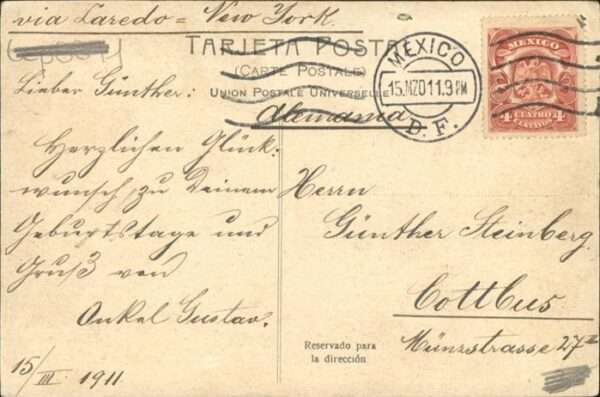 via Laredo = New York.
TARJETA POSTAL
(CARTE POSTALE)
UNION POSTALE UNIVERSELLE
Alemania
MEXICO
15.MZO11.9 PM
D.F.
MEXICO
4 CUATRO 4
CENTAVOS
Lieber Günther:
Herzlichen Glück-
wunsch zu Deinem
Geburtstage und
Gruß von
Onkel Gustav.
15/III. 1911
Herrn
Günther Steinberg.
Cottbus
Münzstrasse 27II
Reservado para
la dirección